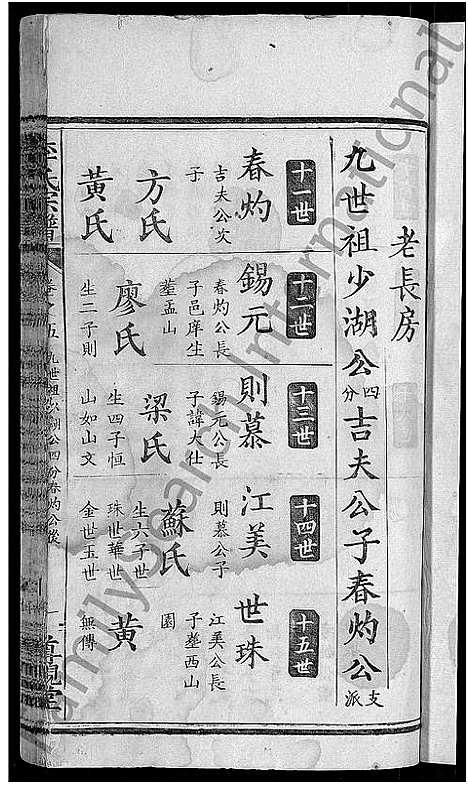 老長房
九世祖少湖公四分吉夫公子春灼公支派
十一世
春灼
吉夫公次
子
方氏
黃氏
十二世
錫元
春灼公長
子邑庠生
塟盂山
廖氏
生二子則
十三世
則慕
錫元公長
子諱大仕
梁氏
生四子恒
山如山文
十四世
江美
則慕公子
蘇氏
生六子世
珠世華世
金世玉世
十五世
世珠
江美公長
子塟西山
園
黃
無傳
李氏宗譜
卷之五 九世祖少湖公四分春灼公後
一
FamilySearch International